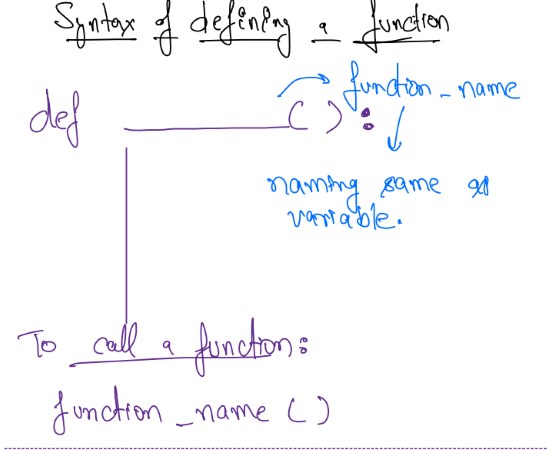 Syntax of defining a function
function_name
def ________( ) :
naming same as
variable.
To call a function:
function_name ( )